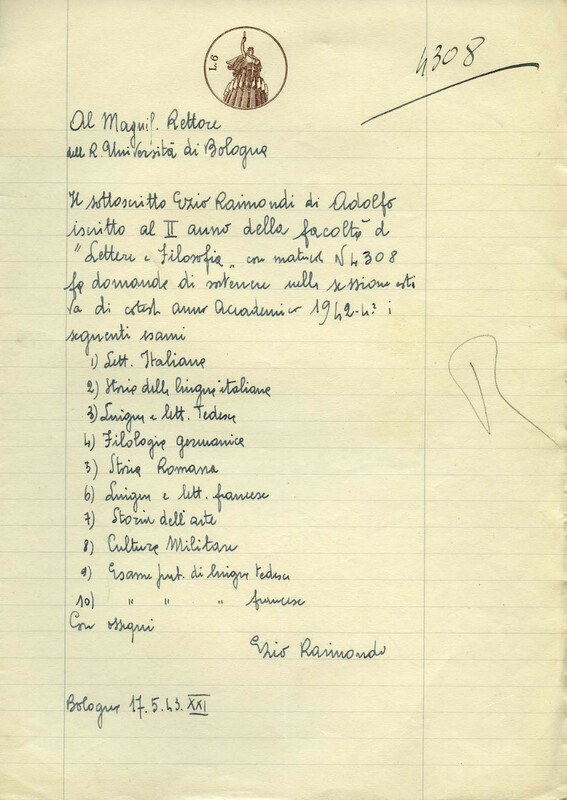 L.6
4308
Al Magnif. Rettore
dell R. Università di Bologna
Il sottoscritto Ezio Raimondi di Adolfo
iscritto al II anno della facoltà d
"Lettere e Filosofia" con matricol N 4308
fa domanda di sostenere nella sessione esti
va di cotest anno Accademico 1942-43 i
seguenti esami
1) Lett. Italiana
2) Storia della lingua italiana
3) Lingua e lett. Tedesca
4) Filologia germanica
5) Storia Romana
6) Lingua e lett. francese
7) Storia dell'arte
8) Cultura Militare
9) Esame di lingua tedesca
10) " " " francese
Con ossequi
Ezio Raimondi
Bologna 17.5.43. XXI
R